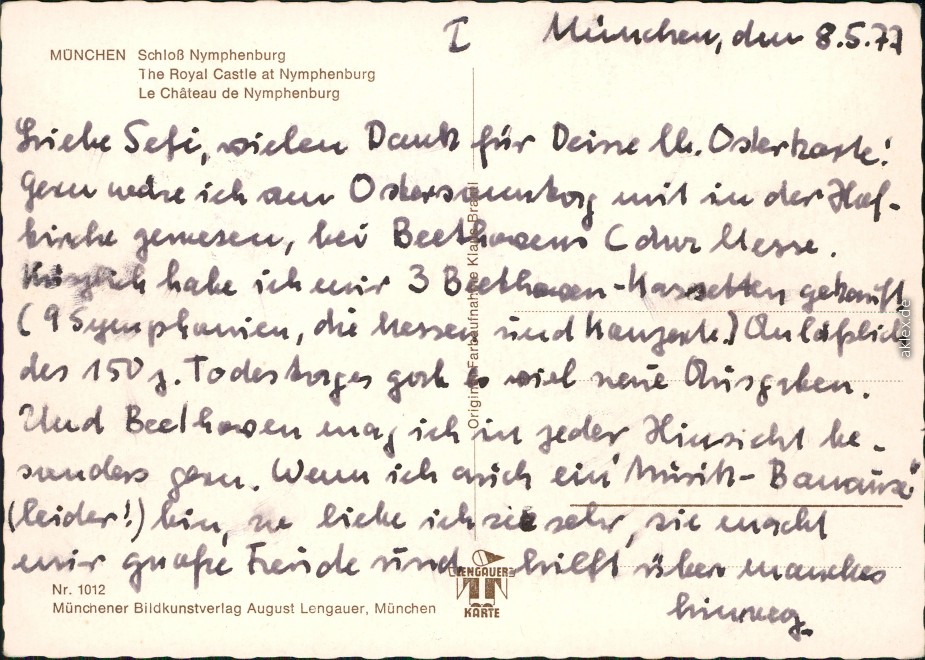 I
München, den 8.5.77
MÜNCHEN Schloß Nymphenburg
The Royal Castle at Nymphenburg
Le Château de Nymphenburg
Liebe Sefi, vielen Dank für Deine lb. Osterkarte!
Gern wäre ich am Ostersonntag mit in der Hof-
kirche gewesen, bei Beethovens C dur Messe.
Kürzlich habe ich mir 3 Beethoven-Kassetten gekauft
(9 Symphonien, die Messen und Konzerte.) Anläßlich
des 150 j. Todestages gab es viel neue Ausgaben.
Und Beethoven mag ich in jeder Hinsicht be-
sonders gern. Wenn ich auch ein "Musik-Banause"
(leider!) bin, so liebe ich sie sehr, sie macht
mir große Freude und hilft über manches
hinweg.
Original-Farbaufnahme Klaus Brandl
LENGAUER
KARTE
Nr. 1012
Münchener Bildkunstverlag August Lengauer, München
aklex.de